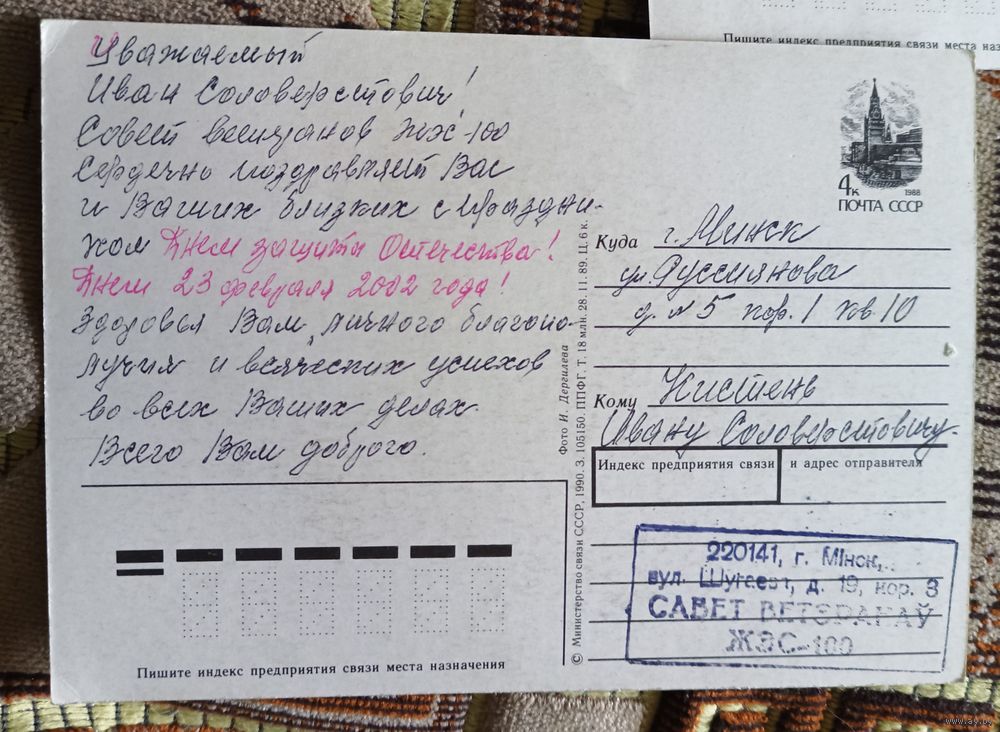 Пишите индекс предприятия связи места наз
Уважаемый
Иван Соловерстович!
Совет ветеранов ЖЭС-100
сердечно поздравляет Вас
и Ваших близких с праздни-
ком Днем защиты Отечества!
Днем 23 февраля 2002 года!
Здоровья Вам, личного благопо-
лучия и всяческих успехов
во всех Ваших делах.
Всего Вам доброго.
4к
1988
ПОЧТА СССР
Куда г. Минск
ул. Руссиянова
д. № 5 кор. 1 кв. 10
Кому Кистень
Ивану Соловерстовичу.
Индекс предприятия связи и адрес отправителя
220141, г. Мінск,
вул. д. 19, кор. 3
САВЕТ ВЕТЭРАНАЎ
ЖЭС-100
Фото И. Дергилева
© Министерство связи СССР, 1990. З. 105150. ППФГ. Т. 18 млн. 28. 11. 89. Ц. 6 к.
Пишите индекс предприятия связи места назначения
www.ay.by